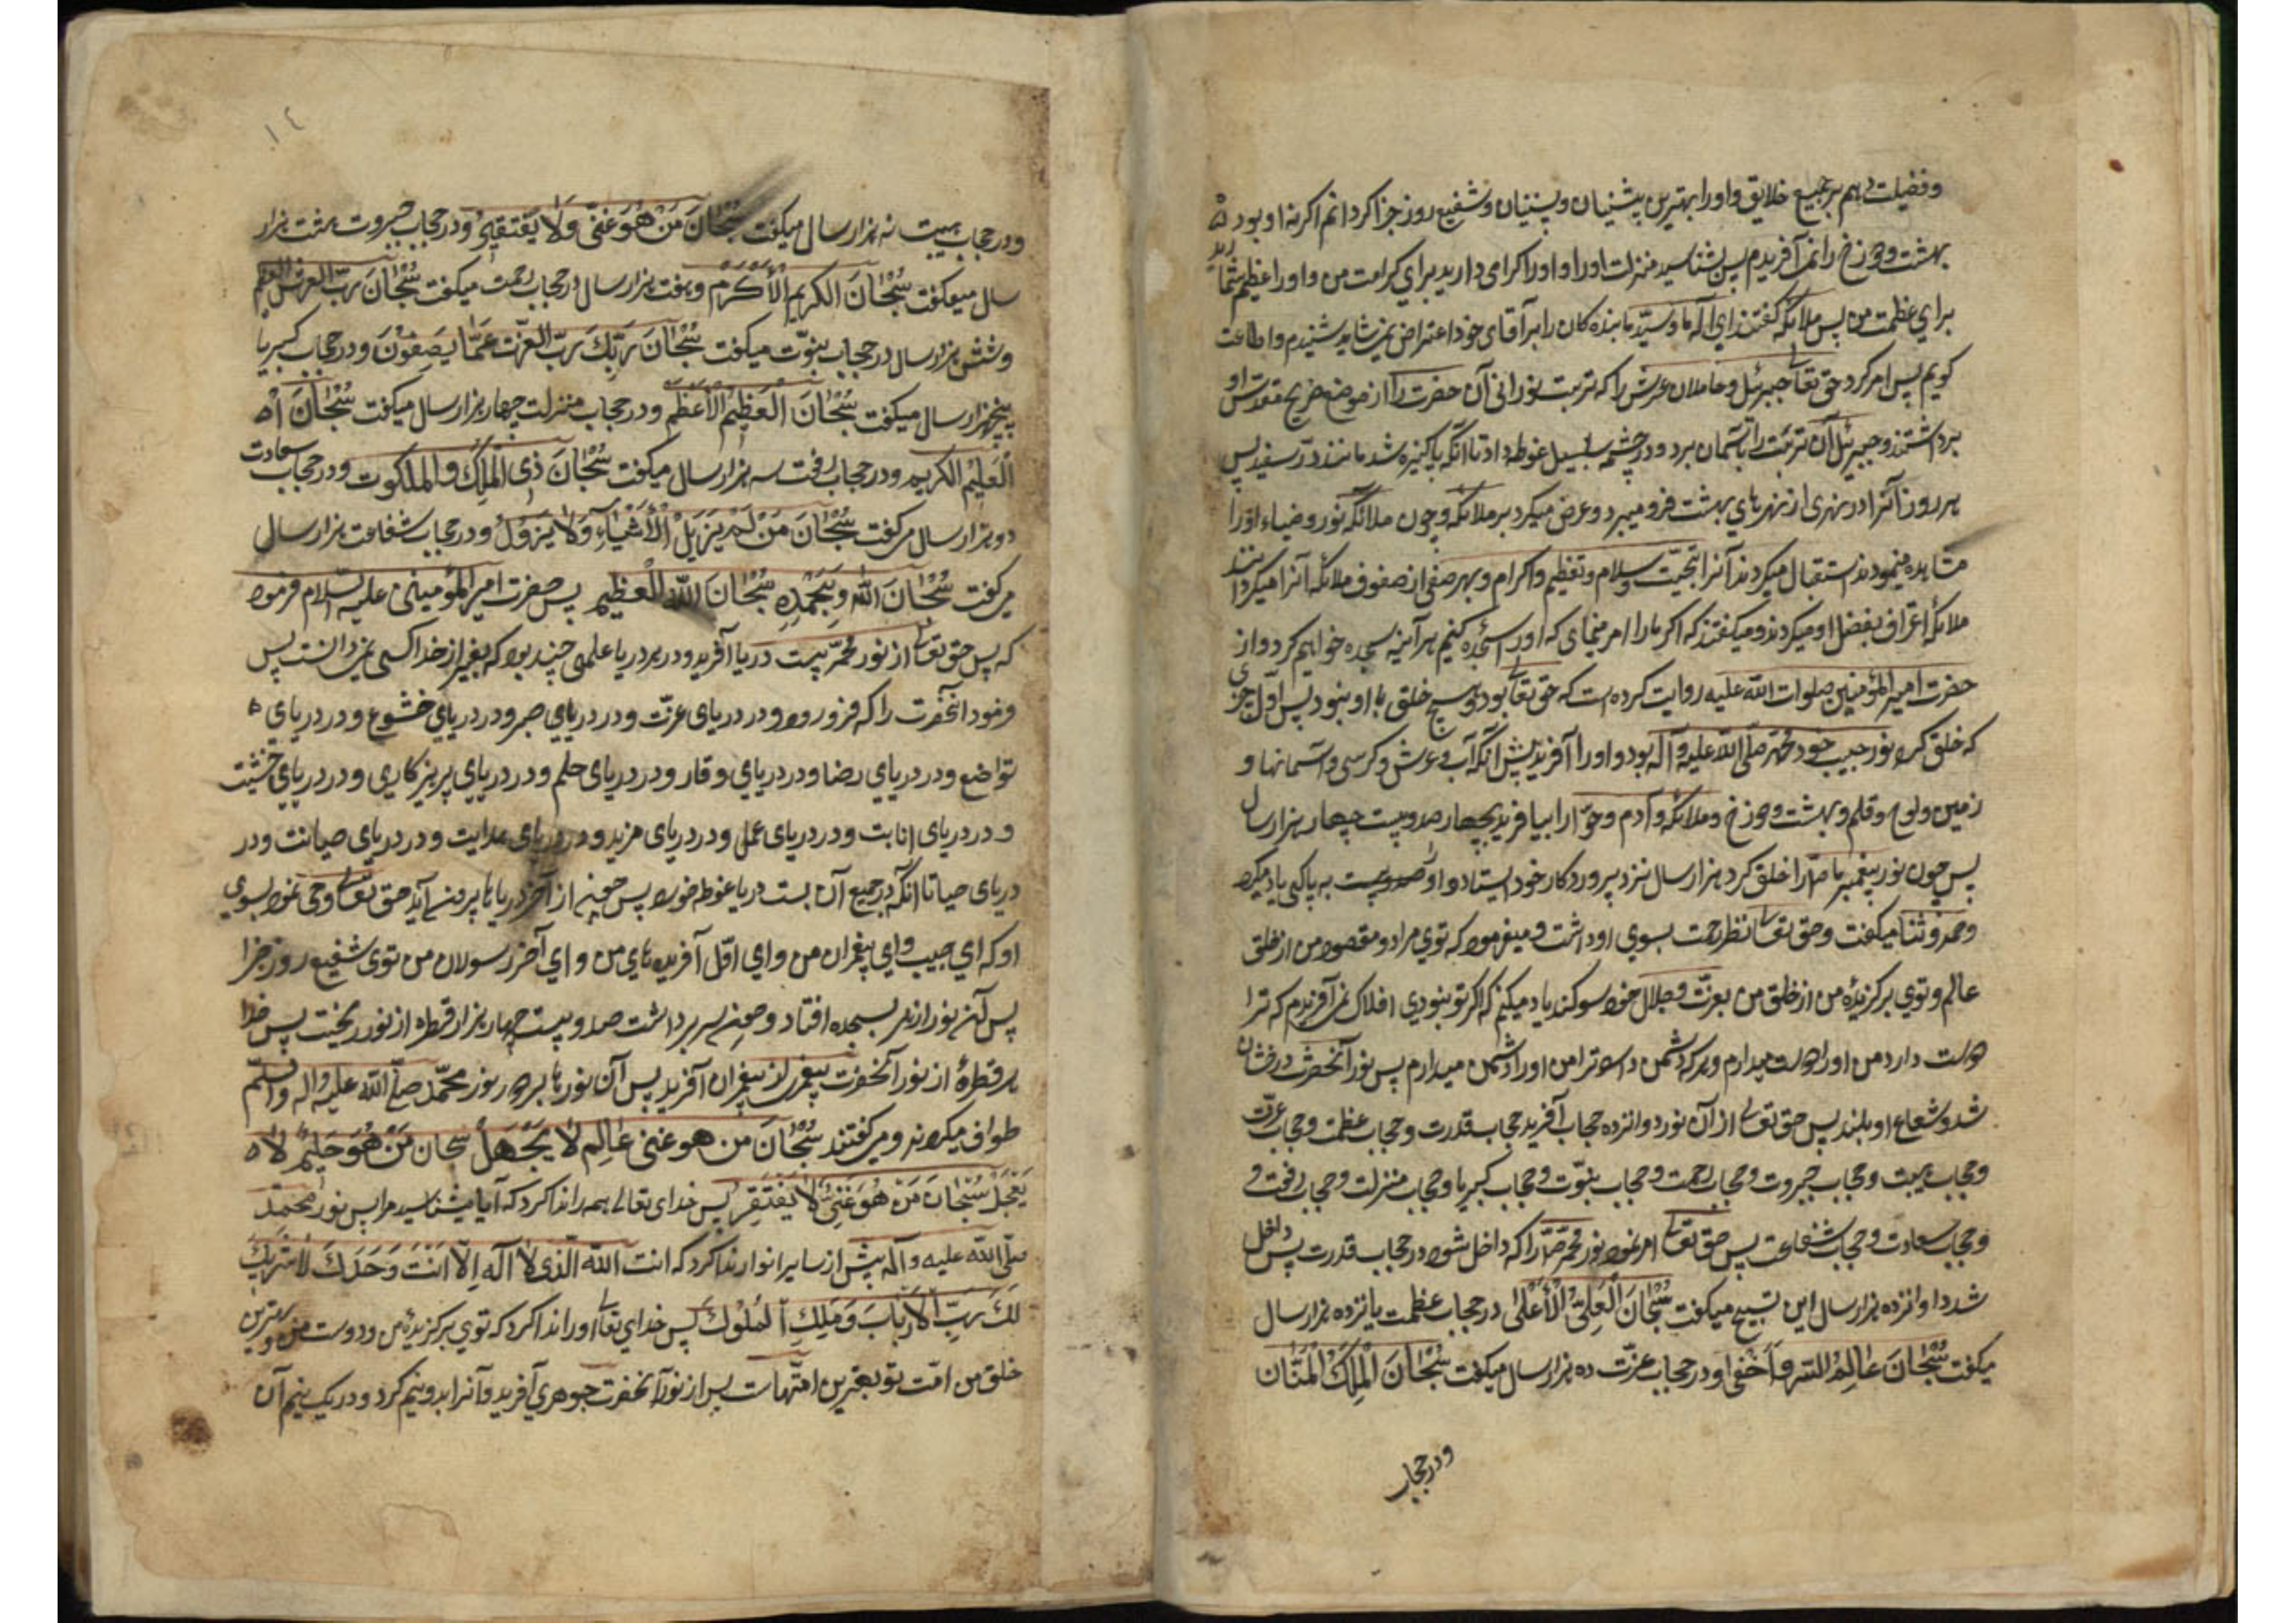 وفضیلت دهم بر جمیع خلایق و او را بهترین پیشینیان و پسینیان و شفیع روز جزا کردانم اکر نه او بود
بهشت و دوزخ را نمی آفریدم پس بشناسید منزلت او را و او را کرامی دارید برای کرامت من و او را عظیم شمارید
برای عظمت من پس ملائکه کفتند ای آله ما و سید ما بنده کان را بر آقای خود اعتراض نمی شاید شنیدم و اطاعت
کویم پس امر کرد حق تعالی جبرئیل و حاملان عرش را که تربت نورانی آن حضرت را از موضع ضریح مقدس او
برداشتند و جبرئیل آن تربت را بآسمان برد و در چشمه سلسبیل غوطه داد تا آنکه پاکیزه شد مانند در سفید پس
هر روز آنرا در نهری از نهرهای بهشت فرو میبرد و عرض میکرد بر ملائکه و چون ملائکه نور و ضیاء او را
مشاهده مینمودند استقبال میکردند آنرا بتحیت و سلام و تعظیم و اکرام و بهر صفی از صفوف ملائکه آنرا میکردانیدند
ملائکه اعتراف بفضل او میکردند و میکفتند که اکر ما را امر مینمای که او را سجده کنیم هر آینه سجده خواهیم کرد و از
حضرت امیر المؤمنین صلوات الله علیه روایت کرده است که حق تعالی بود و هیچ خلق با او نبود پس اول چیزی
که خلق کرد نور حبیب خود محمد صلی الله علیه و آله بود و او را آفرید پیش از آنکه آب و عرش و کرسی و آسمانها و
زمین و لوح و قلم و بهشت و دوزخ و ملائکه و آدم و حوا را بیافریند بچهار صد و بیست چهار هزار سال
پس چون نور پیغمبر ما را خلق کرد هزار سال نزد پروردکار خود ایستاد و او به پاکی یاد میکرد
و حمد و ثنا میکفت و حق تعالی نظر رحمت بسوی او داشت و میفرمود که توی مراد و مقصود من از خلق
عالم و توی برکزیدهٔ من از خلق من بعزت و جلال خود سوکند یاد میکنم که اکر تو نبودی افلاک نمی آفریدم که ترا
دوست دارد من او را دوست میدارم و هر که دشمن دارد ترا من او را دشمن میدارم پس نور آنحضرت درخشان
شد و شعاع او بلند پس حق تعالی از آن نور دوانزده حجاب آفرید حجاب قدرت و حجاب عظمت و حجاب عزت
و حجاب هیبت و حجاب جبروت و حجاب رحمت و حجاب نبوت و حجاب کبریا و حجاب منزلت و حجاب رفعت و
و حجاب سعادت و حجاب شفاعت پس حق تعالی امر نمود نور محمد را که داخل شود در حجاب قدرت پس داخل
شد دوانزده هزار سال این تسبیح میکفت سُبْحَانَ الْعَلِیِّ الْأَعْلَى در حجاب عظمت یانزده هزار سال
میکفت سُبْحَانَ عَالِمُ السِّر وَأَخْفَی و در حجاب عزت ده هزار سال میکفت سُبْحَانَ الْمَلِكُ الْمَنَّان
و در حجاب
١٤
و در حجاب هیبت نه هزار سال میکفت سُبْحَانَ مَنْ هُوَ غَنِیٌّ وَلَا یَفْتَقِرُ و در حجاب جبروت هشت هزار
سال میکفت سُبْحَانَ الکریم الْأَکْرَم و هفت هزار سال در حجاب رحمت میکفت سُبْحَانَ رَبِّ العرش العظیم
و شش هزار سال در حجاب نبوت میکفت سُبْحَانَ رَبِّكَ رَبِّ العِزَّت عَمَّا یَصِفُوْنَ و در حجاب کبریا
پنجهزار سال میکفت سُبْحَانَ الْعَظِیْم الْأَعْظَم و در حجاب منزلت چهار هزار سال میکفت سُبْحَانَ
الْعَلِیْم الکریم و در حجاب رفعت سه هزار سال میکفت سُبْحَانَ ذِی الْمُلْكِ وَ الملکوت و در حجاب سعادت
دو هزار سال میکفت سُبْحَانَ مَنْ یُزِیلُ الْأَشْیَاءَ وَلَا یَزُولُ و در حجاب شفاعت هزار سال
میکفت سُبْحَانَ اللّٰه وَبِحَمْدِهِ سُبْحَانَ اللّٰه الْعَظِیم پس حضرت امیر المؤمنین علیه السلام فرمود
که پس حق تعالی از نور محمد بیست دریا آفرید و در هر دریا علمی چند بود که بغیر از خدا کسی نمی دانست پس
فرمود آنحضرت را که فرو رود در دریای عزت و در دریای صبر و در دریای خشوع و در دریای
تواضع و در دریای رضا و در دریای وقار و در دریای حلم و در دریای پرهیزکاری و در دریای خشیت
و در دریای انابت و در دریای عمل و در دریای مزید و در دریای هدایت و در دریای صیانت و در
دریای حیا تا آنکه در جمیع آن بیست دریا غوطه خورد پس چون از آخر دریاها بیرون آمد حق تعالی وحی نمود بسوی
او که ای حبیب و ای پیغمبران من و ای اول آفریده های من و ای آخر رسولان من توی شفیع روز جزا
پس آن نور از هر بسجده افتاد و چون سر برداشت صد و بیست چهار هزار قطره از نور ریخت پس خدا
هر قطرهٔ از نور آنحضرت پیغمبر از پیغمبران آفرید پس آن نورها بر دور نور محمد صلی الله علیه و اله و سلم
طواف میکردند و میکفتند سُبْحَانَ من هو عالِم لَا یَجْهَلُ سبحان مَنْ هُوَ حَلِیْمٌ لَا
یَعْجَلُ سُبْحَانَ مَنْ هُوَ غَنِیٌّ لَا یَفْتَقِرُ پس خدای تعالی همه را ندا کرد که آیا میشناسید مرا پس نور محمد
صلی الله علیه و آله پیش از سایر انوار ندا کرد که انت اللّٰه الَّذی لَا آله اِلَّا اَنْتَ وَحْدَكَ لَا شَرِیكَ
لَكَ رَبِّ الْاَرْبَابَ وَمَلِكِ الْمُلُوكَ پس خدای تعالی او را ندا کرد که توی برکزیدهٔ من و دوست من و بهترین
خلق من امّت تو بهترین امّتهاست پس از نور آنحضرت جوهری آفرید و آنرا بدو نیم کرد و در یک نیم آن